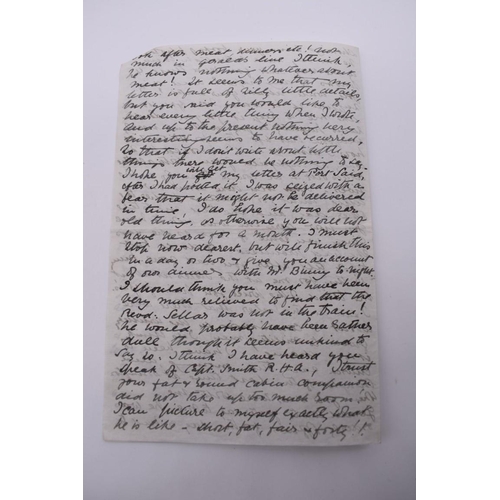 after meat dinners etc! Not
much in Gerald's line I think
He knows nothing whatever about
meat! It seems to me that my
letter is full of silly little details,
but you said you would like to
hear every little thing when I wrote,
And up to the present nothing very
interesting seems to have occurred,
So that if I don't write about little
things there would be nothing to say.
I hope you will get my letter at Port Said,
after I had posted it, I was seized with a
fear that it might not be delivered
in time, I do hope it was dear
old thing, as otherwise you will not
have heard for a month. I must
stop now dearest, but will finish this
in a day or two & give you an account
of our dinner with Mr Binny to-night.
I should think you must have been
very much relieved to find that the
Revd. Sellar was not in the train!
he would probably have been rather
dull though it seems unkind to
say so. I think I have heard you
speak of Capt. Smith R.H.A., I trust
your fat & round cabin companion
did not take up too much room,
I can picture to myself exactly what
he is like - short, fat, fair & forty!!